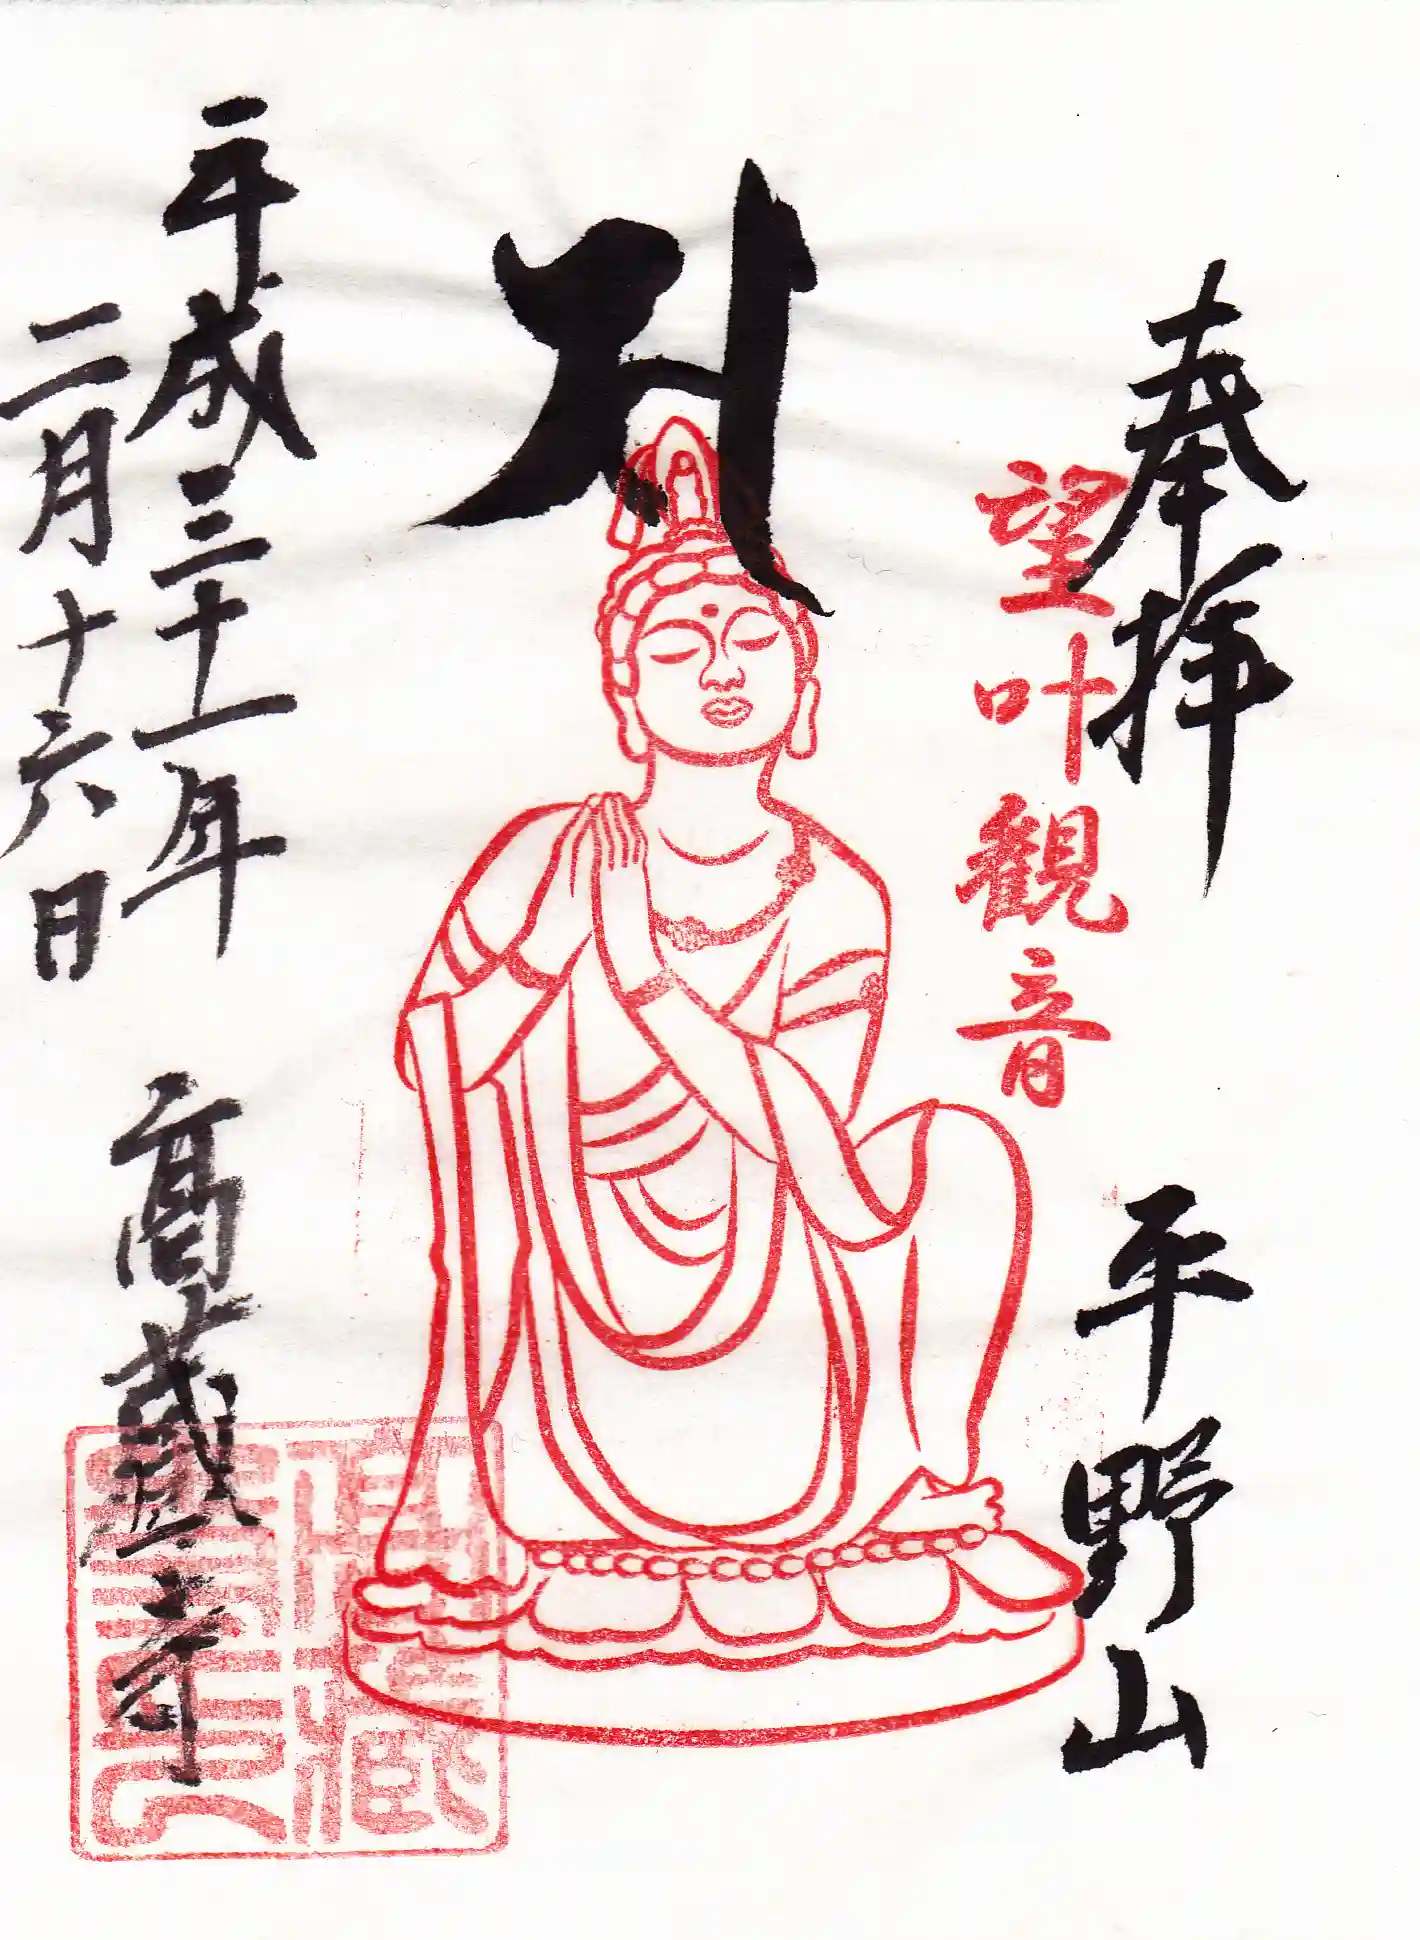 奉拝
平野山
望叶観音
𑖭
平成三十一年
二月十六日
高蔵寺